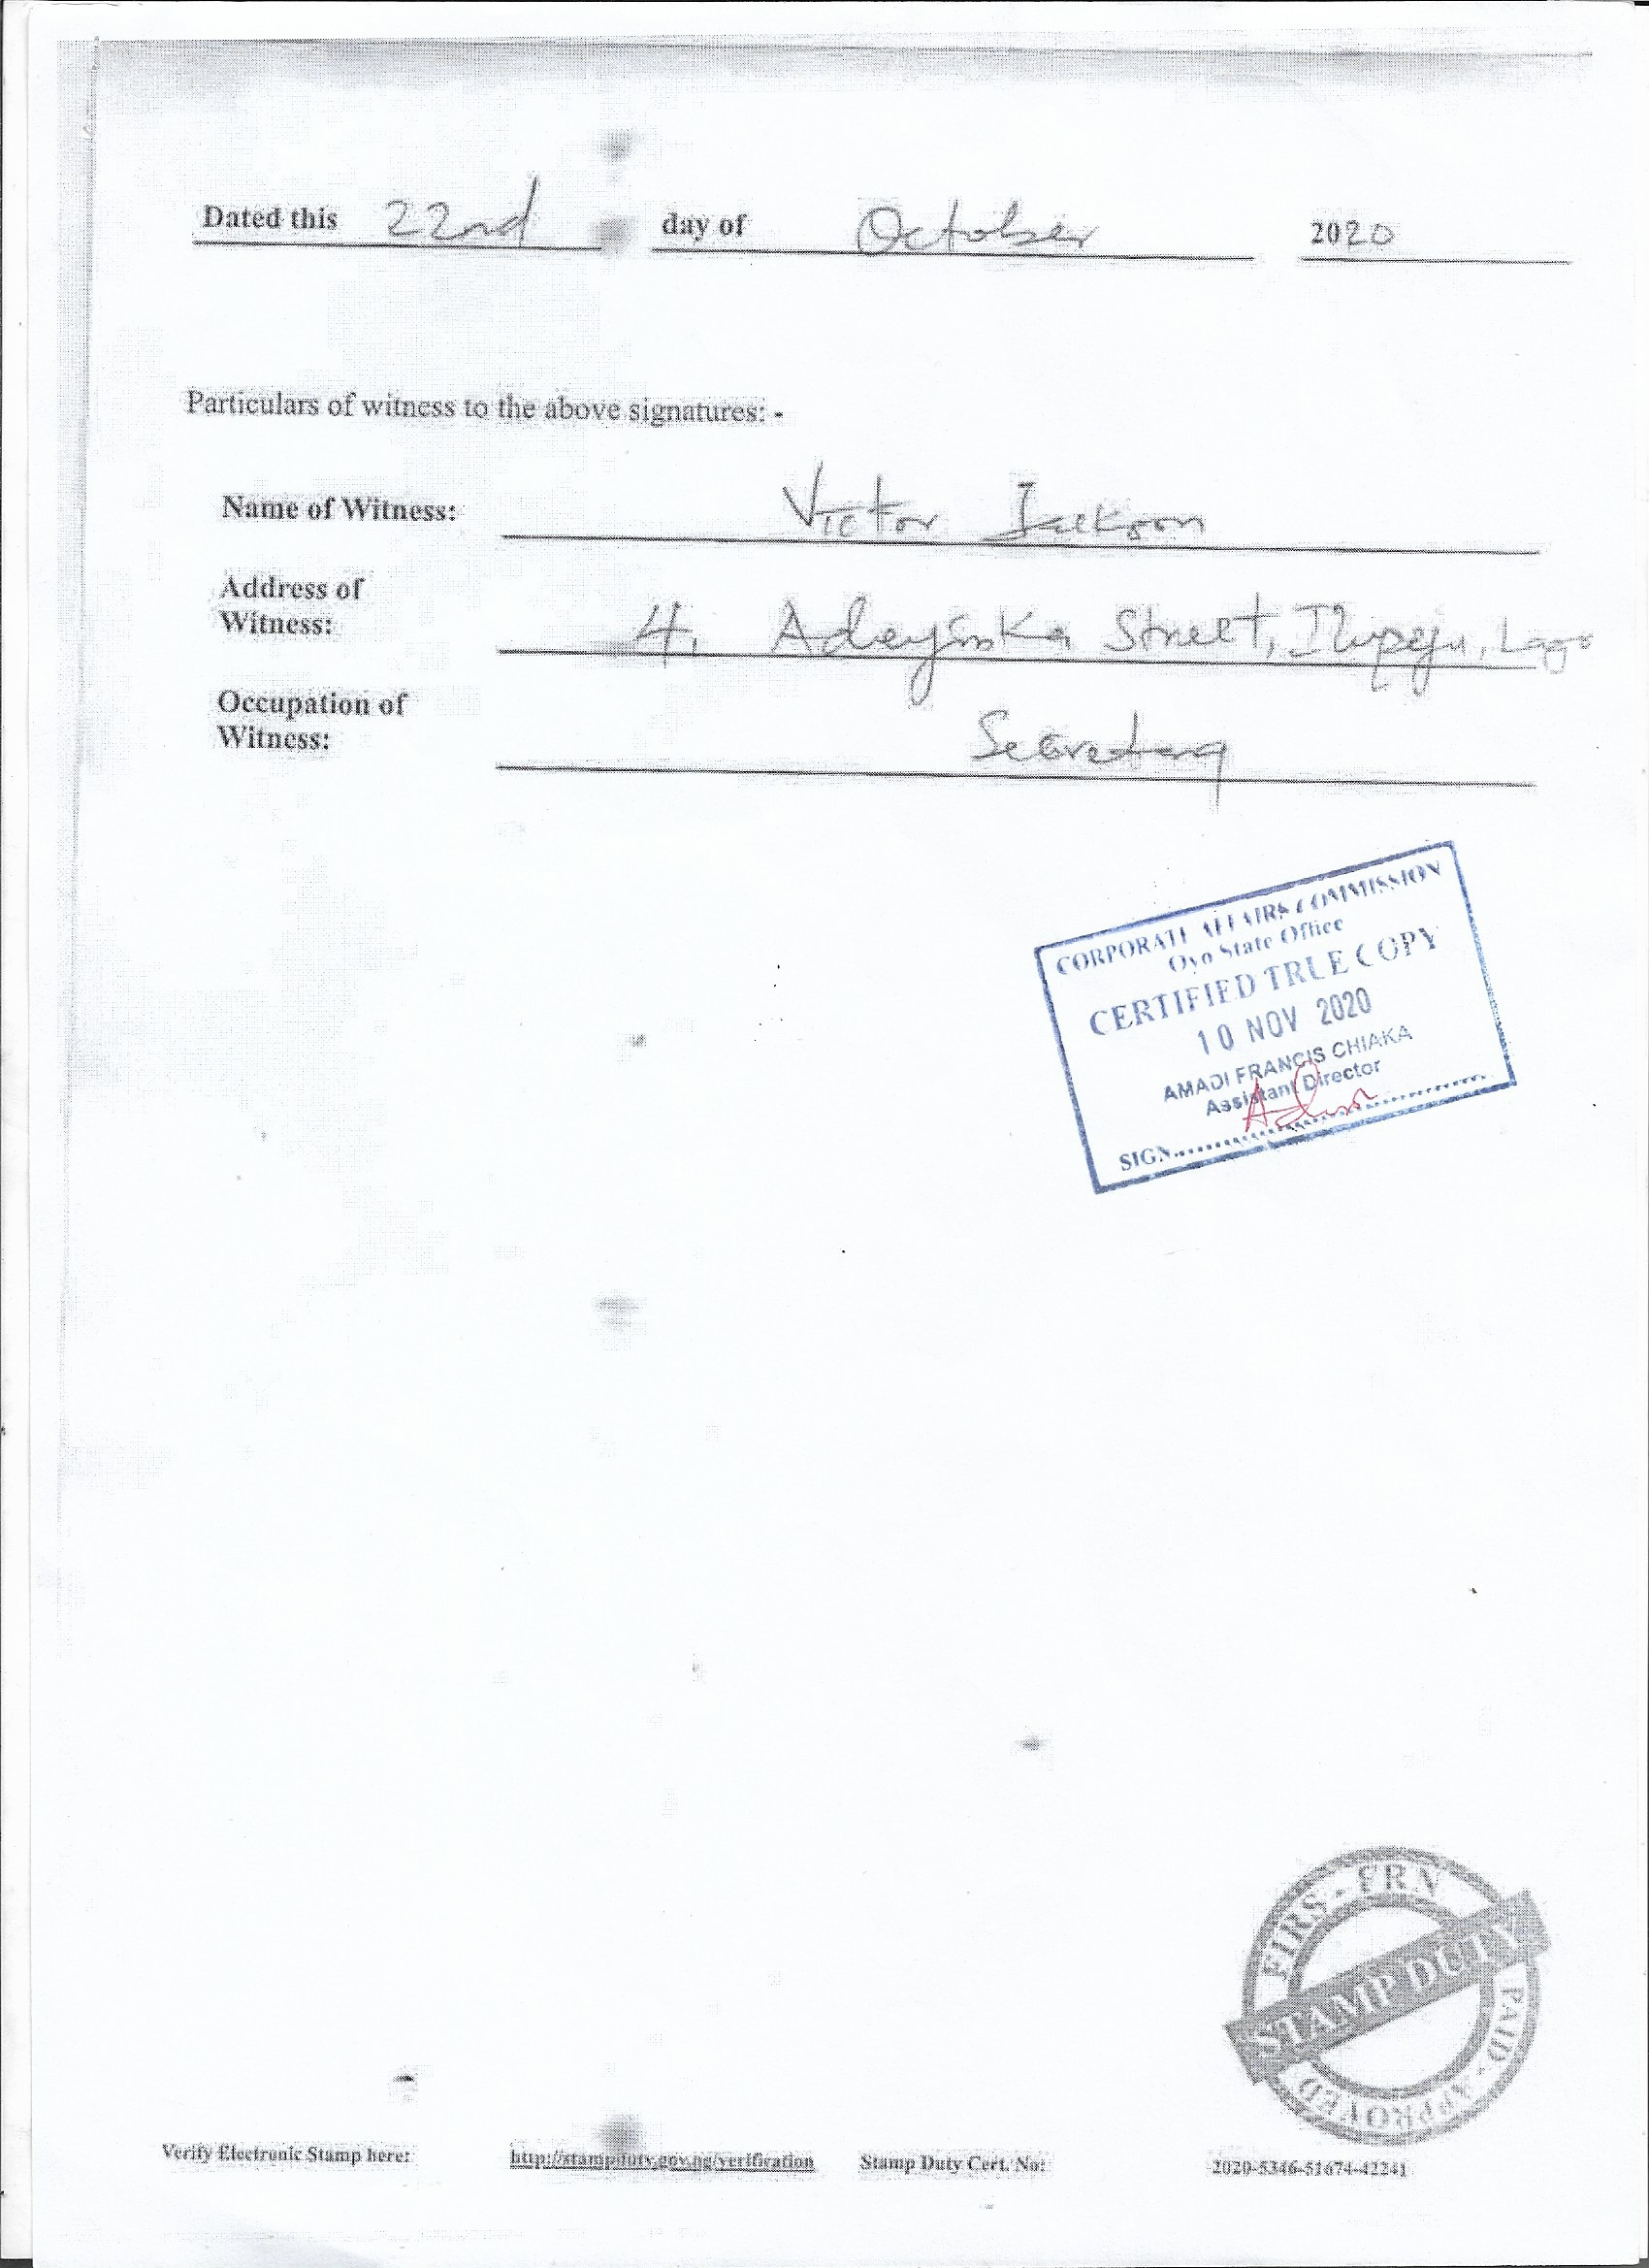 Dated this 22nd day of October 2020
Particulars of witness to the above signatures: -
Name of Witness: Victor Jackson
Address of
Witness: 4, Adeyinka Street, Ilupeju, Lagos
Occupation of
Witness: Secretary
CORPORATE AFFAIRS COMMISSION
Oyo State Office
CERTIFIED TRUE COPY
10 NOV 2020
AMADI FRANCIS CHIAKA
Assistant Director
SIGN
FIRS - FRN
STAMP DUTY
PAID - APPROVED
Verify Electronic Stamp here: http://stampduty.gov.ng/verification Stamp Duty Cert. No: 2020-5346-51674-42241